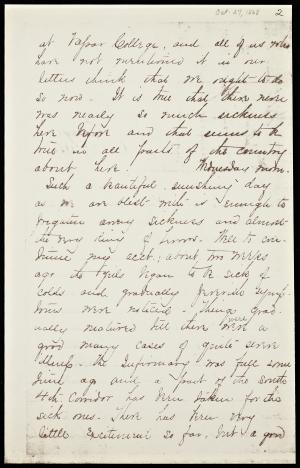 Oct. 27, 1868
2
at Vassar College, and all of us who
have not mentioned it in our
letters think that we ought to do
so now. It is true that there never
was nearly so much sickness
here before and that seems to be
true in all parts of the country
about here. Wednesday morn.
Such a beautiful sunshiny day
as we are blest with is enough to
frighten away sickness and almost
the very king of terrors. Well to con-
tinue my acct; about two weeks
ago the girls began to be sick of
colds and gradually feverish symp-
toms were noticed. Things grad-
ually matured till there were a
good many cases of quite severe
illness. The Infirmary was full some
time ago and a part of the South
4th. Corridor has been taken for the
sick ones. There has been very
little excitement so far, but a good